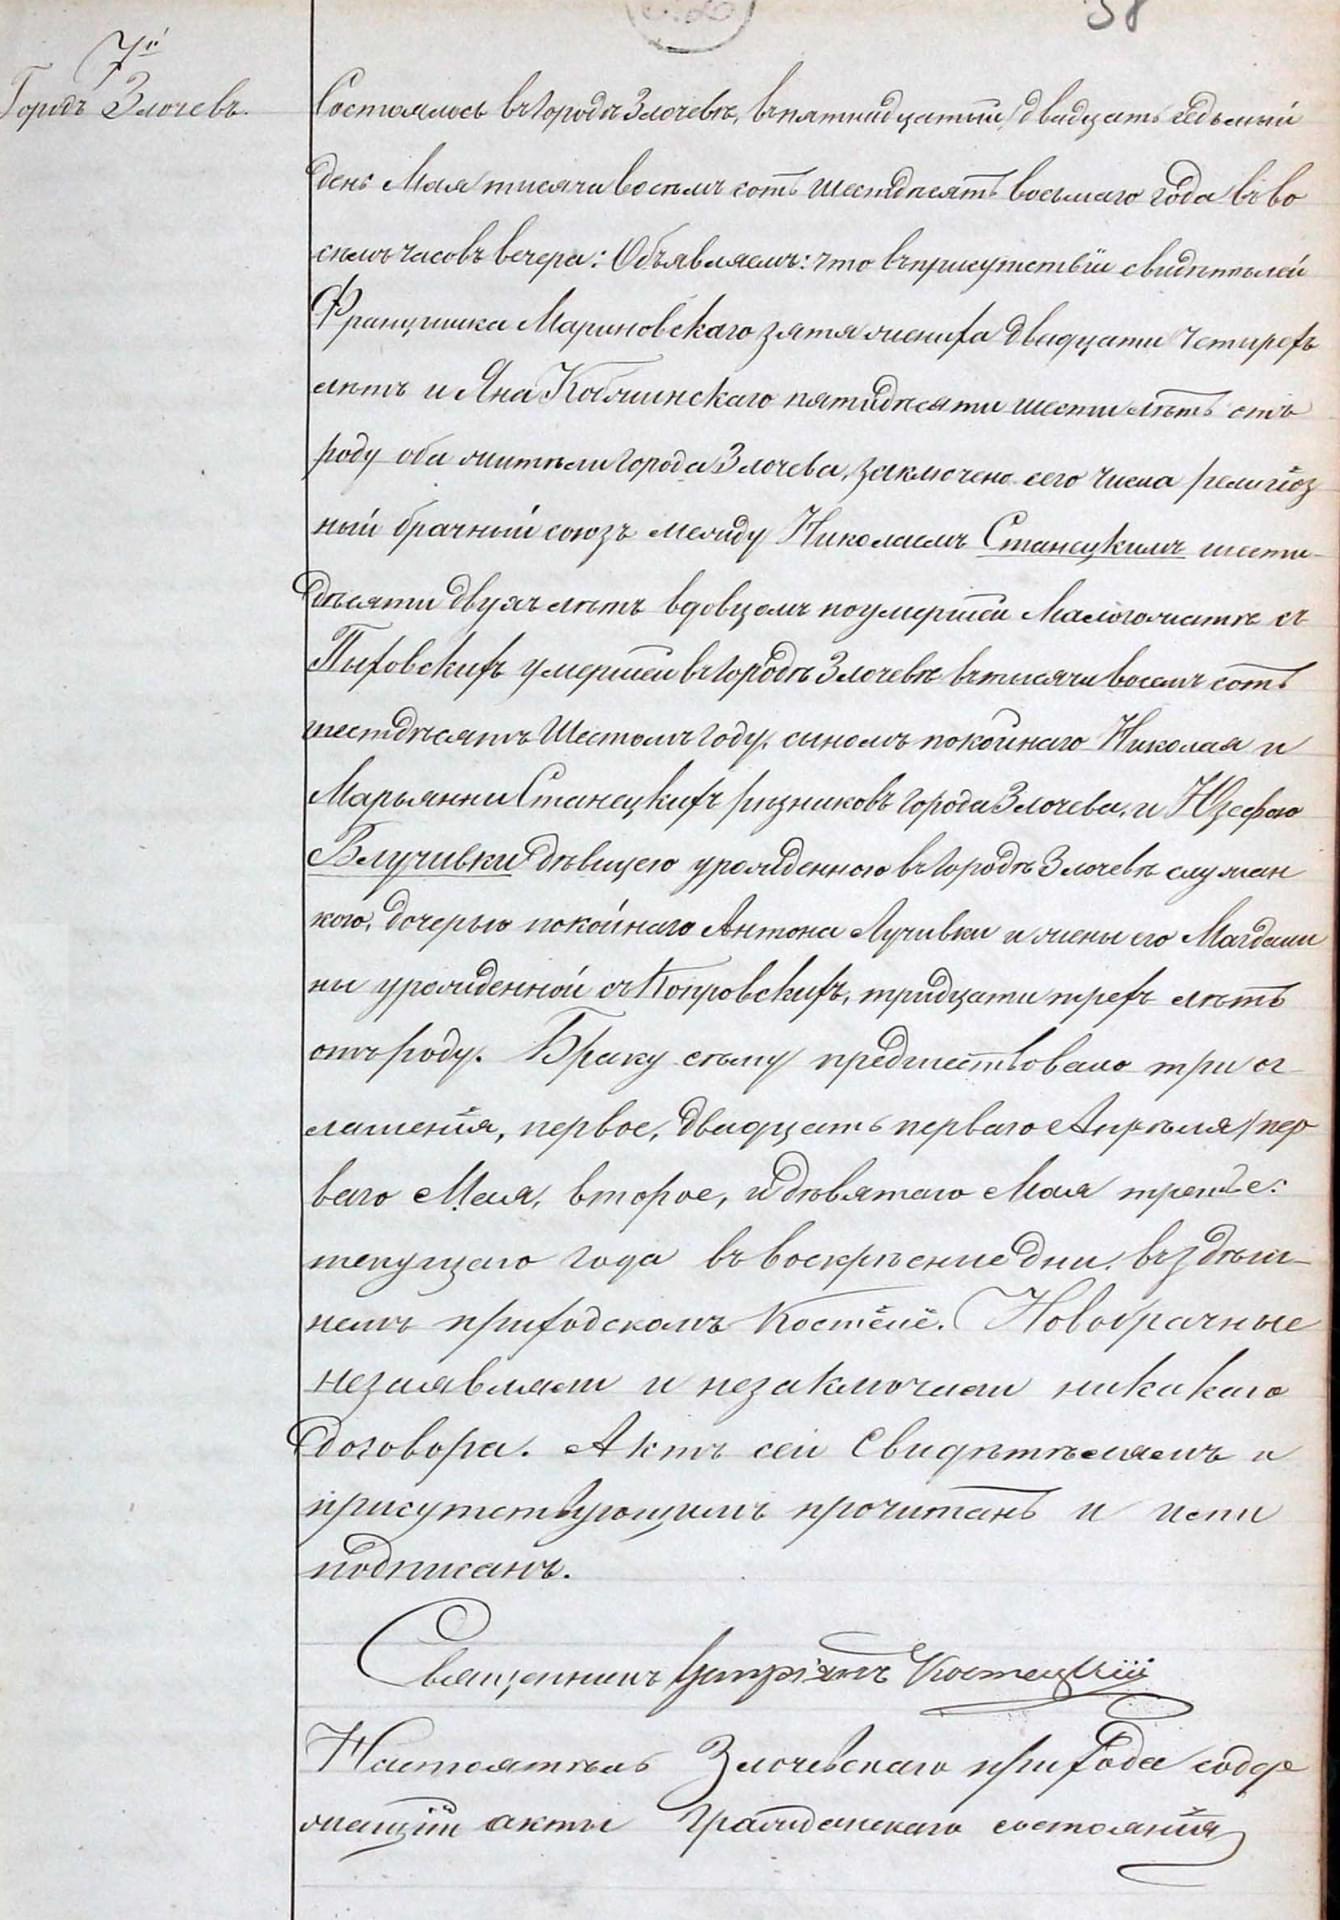 38
7й
Городъ Злочевъ.
Состоялось въ городѣ Злочевѣ, въ пятнадцатый/двадцать седьмый
день Мая тисяча восемъ сотъ шестдѣсятъ восьмаго года въ во
сѣмъ часовъ вечера: Объявляемъ: что въ присутствіи свидѣтѣлей
Францишка Мариновскаго зятя жениха двадцати четырехъ
лѣтъ и Яна Кобжинскаго пятидѣсяти шести лѣтъ отъ
роду оба житѣли города Злочева, заключено сего числа религіоз
ный брачный союзъ между Николаемъ Станецкимъ шести-
дѣсяти двухъ лѣтъ вдовцомъ по умершей Малгожатѣ съ
Пыховскихъ умершей въ городѣ Злочевѣ въ тысячи восемъ сотъ
шестдѣсятъ Шестомъ году, сыномъ покойнаго Николая и
Марьянни Станецкихъ рѣзниковъ города Злочева, и Юзефою
Влучивки дѣвицею урожденною въ городѣ Злочевѣ служан
кою, дочерью покойнаго Антона Лучивки и жены его Магдали
ны урожденной съ Копровскихъ, тридцати трехъ лѣтъ
отъ роду. Браку сѣму предшествовало три ог-
лашенія, первое, двадцать перваго Апрѣля/пер
ваго Мая, второе, и дѣвятаго Мая третье:
текущаго года въ воскрѣсние дни, въ здѣш-
немъ приходскомъ Костёлё. Новобрачные
незаявляют и незаключают никакаго
договора. Актъ сей Свидѣтѣлямъ и
присутствующимъ прочитанъ и нами
подписанъ.
Священникъ Костецкій
Настоятѣль Злочевскаго прихода содер
жащій акты Гражданскаго состоянія